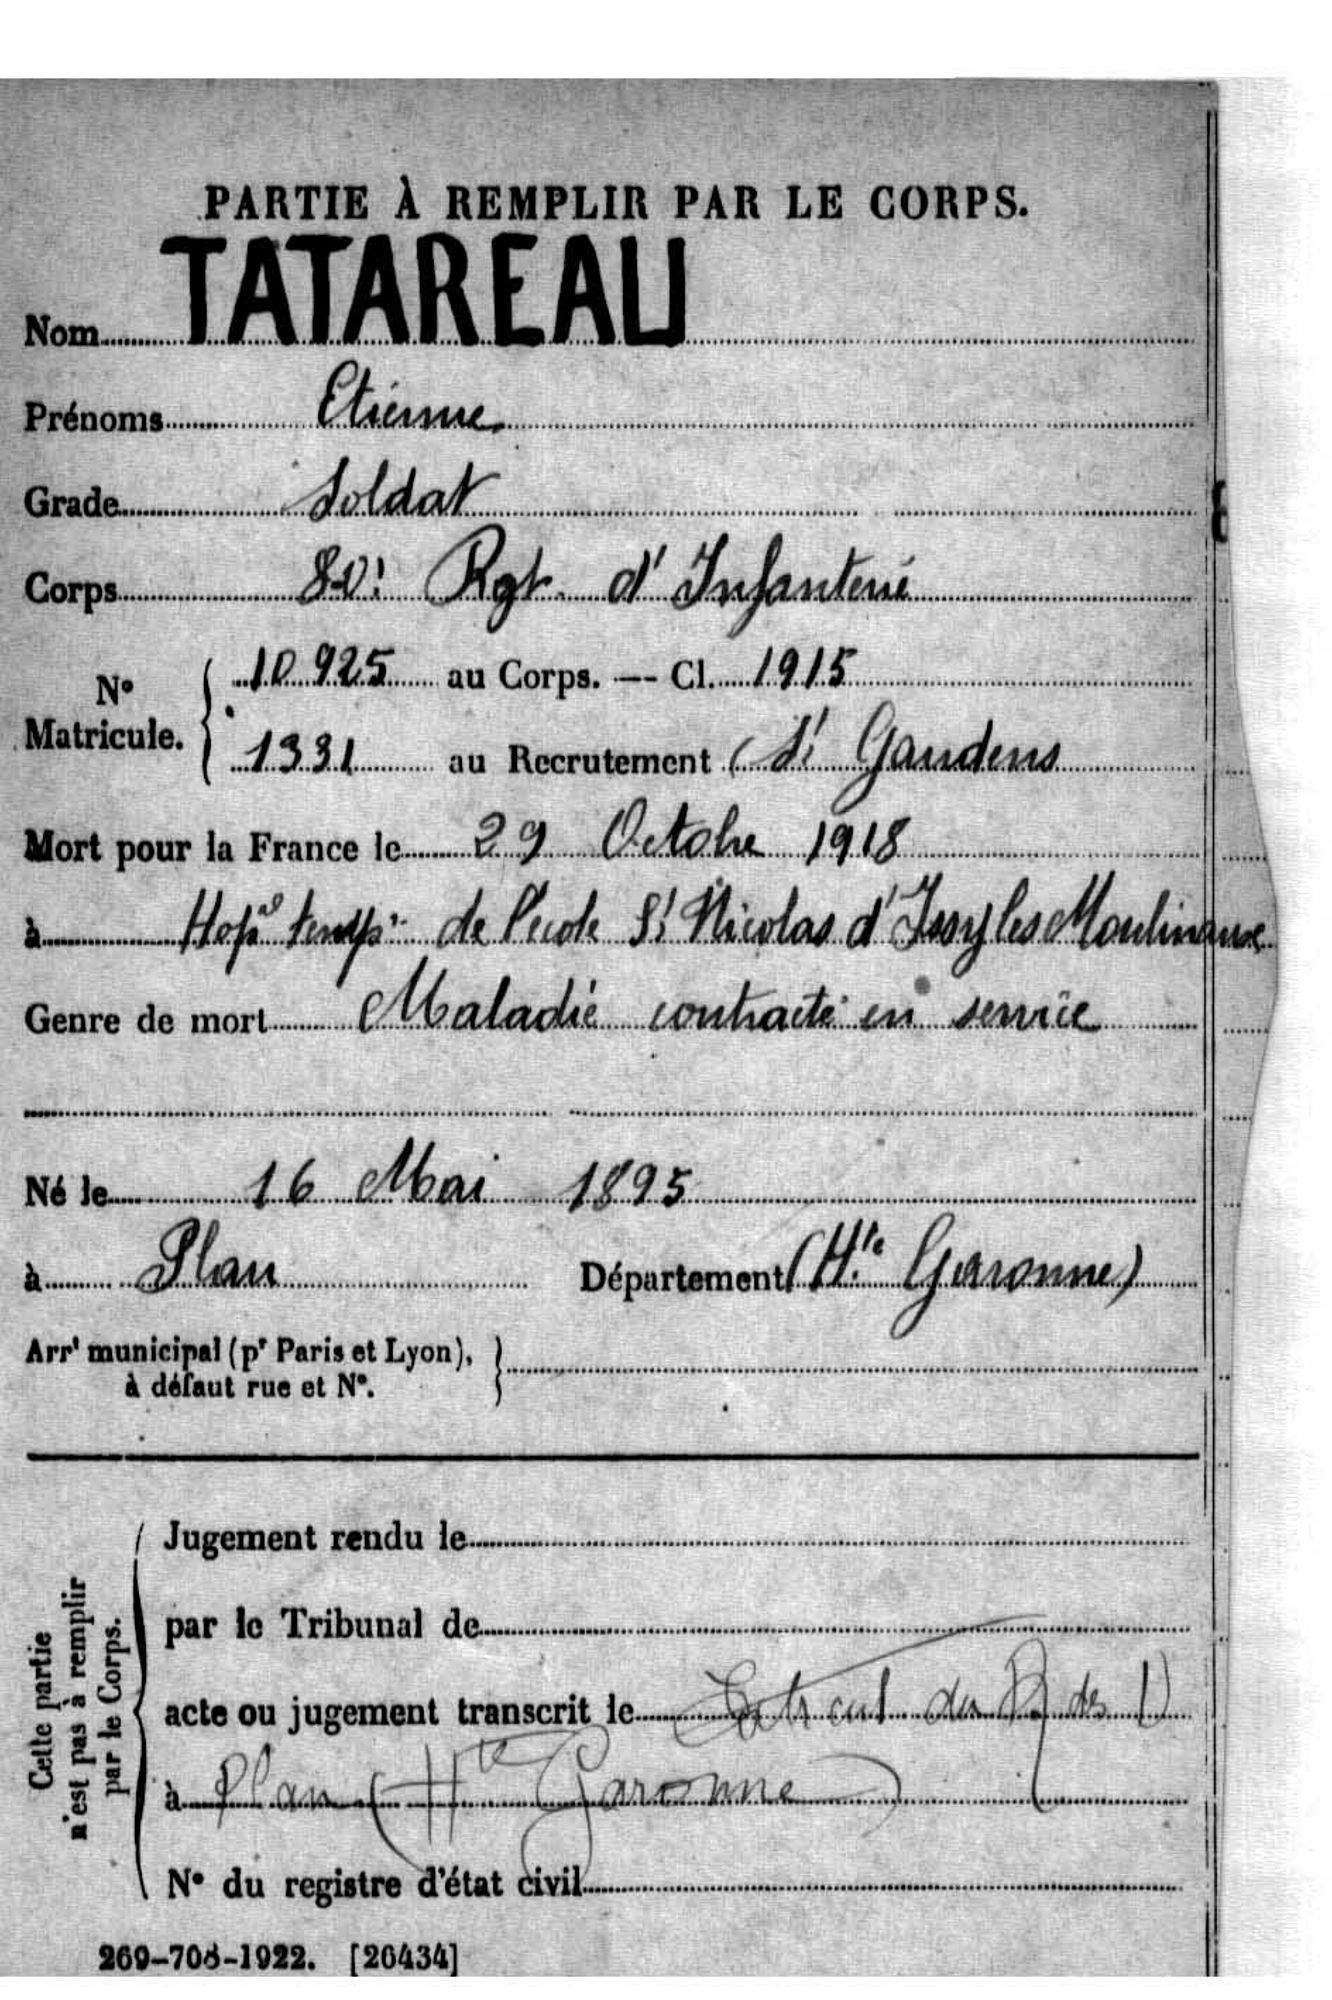 PARTIE À REMPLIR PAR LE CORPS.
Nom TATAREAU
Prénoms Etienne
Grade Soldat
Corps 80e Rgt d'Infanterie
N° Matricule. 10 925 au Corps. — Cl. 1915
1331 au Recrutement (St Gaudens
Mort pour la France le 29 Octobre 1918
à Hopal tempre de l'école St Nicolas d'Issy les Moulineaux
Genre de mort Maladie contractée en service
Né le 16 Mai 1895
à Plan Département (Hte Garonne)
Arrt municipal (pr Paris et Lyon),
à défaut rue et N°.
Cette partie
n'est pas à remplir
par le Corps.
Jugement rendu le
par le Tribunal de
acte ou jugement transcrit le Extrait du R des D
à Plan (Hte Garonne)
N° du registre d'état civil
269-708-1922. [26434]